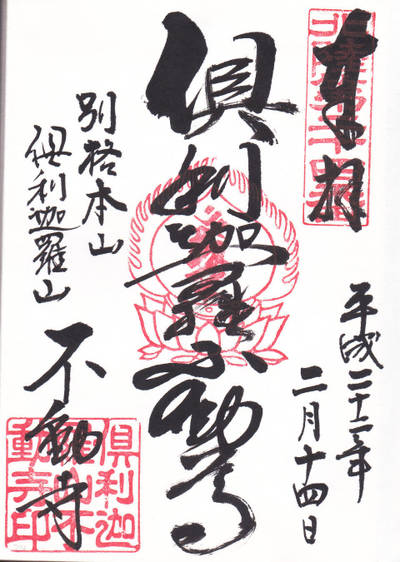 奉拝
平成二十二年
二月十四日
俱利迦羅不動尊
別格本山
俱利迦羅山
不動寺
俱利迦
羅山不
動寺印